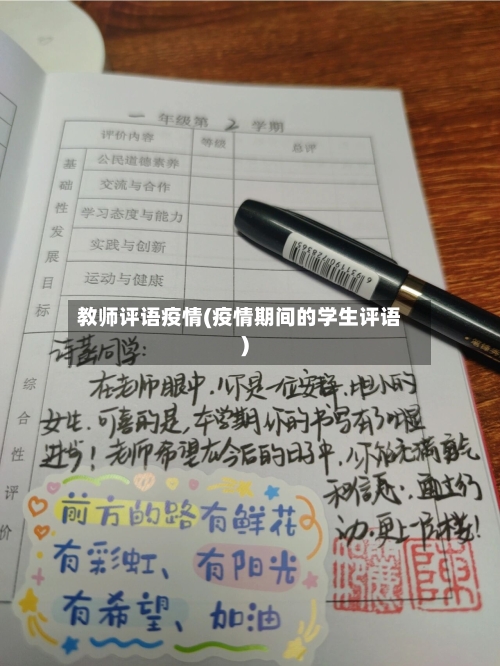 一 年级第 2 学期
评价内容 等级 总评
基础性发展目标
公民道德素养
交流与合作
学习态度与能力
实践与创新
运动与健康
6931190728363
教师评语疫情(疫情期间的学生评语
)
诗茜同学:
综合性评价
在老师眼中,你是一位安静、胆小的
女生.可喜的是,本学期你的书写有了明显
进步!老师希望在今后的日子中,你能充满勇气
和信心.
更上一层楼!
前方的路有鲜花
有彩虹、有阳光
有希望、加油